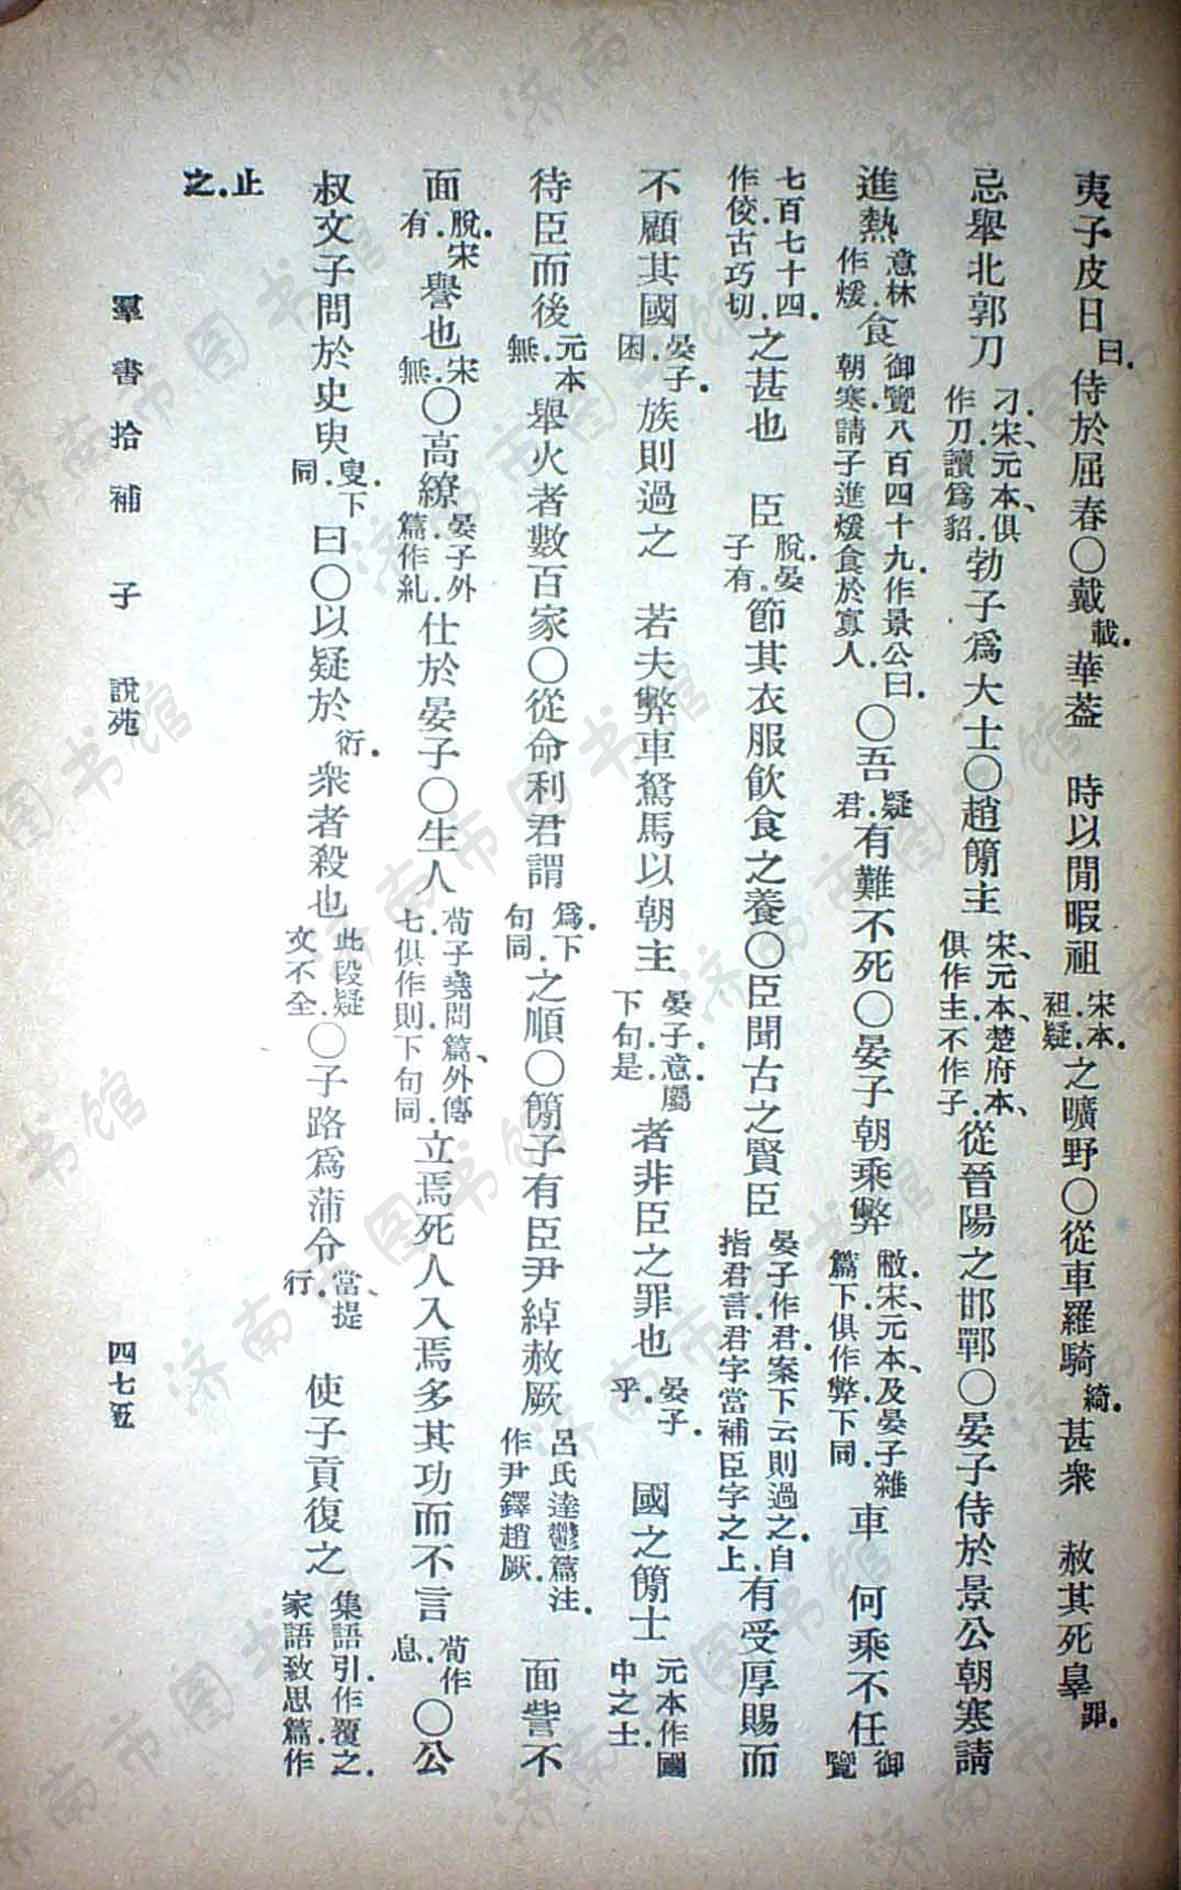 夷子皮日曰.侍於屈春○戴載.華葢　時以閒暇祖宋本.祖疑.之曠野○從車羅騎綺.甚衆　赦其死辠罪.
忌舉北郭刀刁.宋、元本、俱作刀.讀爲貂.勃子爲大士○趙簡主宋、元本、楚府本、俱作主.不作子.從晉陽之邯鄲○晏子侍於景公朝寒請
進熱意林作煖.食御覽八百四十九.作景公曰.朝寒.請子進煖食於寡人.○吾疑君.有難不死○晏子朝乘弊敝.宋、元本、及晏子雜篇下.俱作弊.下同.車　何乘不任御覽
七百七十四.作佼.古巧切.之甚也　臣脫.晏子有.節其衣服飲食之養○臣聞古之賢臣晏子作君.案下云則過之.自指君言.君字當補臣字之上.有受厚賜而
不顧其國晏子.困.族則過之　若夫弊車駑馬以朝主晏子.意屬下句.是.者非臣之罪也晏子.乎.　國之簡士元本作國中之士.
待臣而後元本無.舉火者數百家○從命利君謂爲.下句同.之順○簡子有臣尹綽赦厥呂氏達鬱篇注.作尹鐸趙厥.　面訾不
面脫.宋有.譽也宋無.○高繚晏子外篇.作糺.仕於晏子○生人荀子堯問篇、外傳七.俱作則.下句同.立焉死人入焉多其功而不言荀作息.○公
叔文子問於史臾叟.下同.曰○以疑於衍.衆者殺也此段疑文不全.○子路爲蒲令當提、行.　使子貢復之集語引.作覆之.家語致思篇.作
止之.
羣書拾補　子　說苑　四七五
济南市图书馆